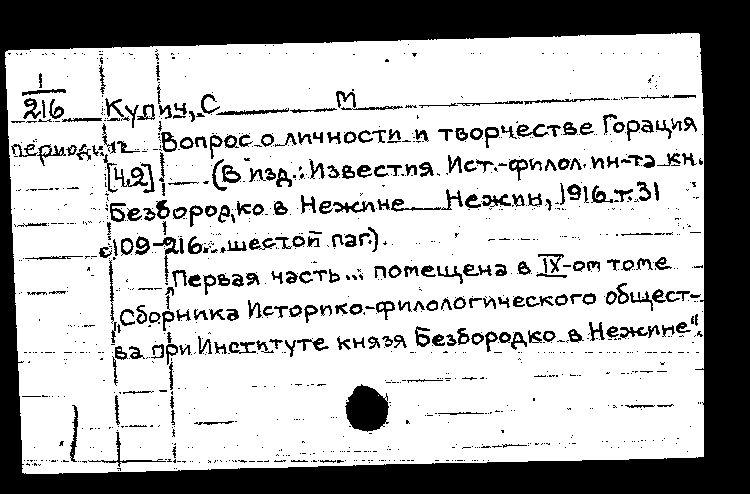 1
216 Купич, С М
периодич Вопрос о личности и творчестве Горация
[ч.2]. (В изд.: Известия Ист.-филол. ин-та кн.
Безбородко в Нежине Нежин, 1916. т. 31
с 109-216... шестой паг.).
"Первая часть... помещена в IX-ом томе
"Сборника Историко-филологического общест-
ва при Институте князя Безбородко в Нежине".